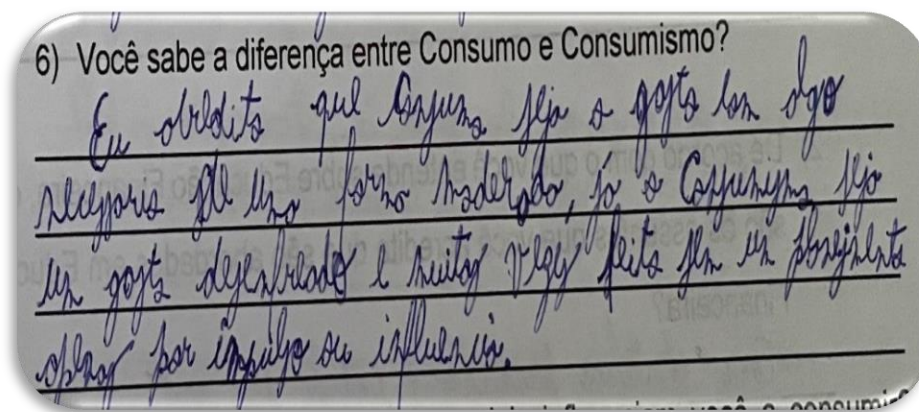 6) Você sabe a diferença entre Consumo e Consumismo?
Eu acredito que Consumo seja o gasto com algo
necessario de uma forma moderada, já o Consumismo seja
um gasto desenfreado e muitas vezes feito sem um planejamento
apenas por impulso ou influencia.